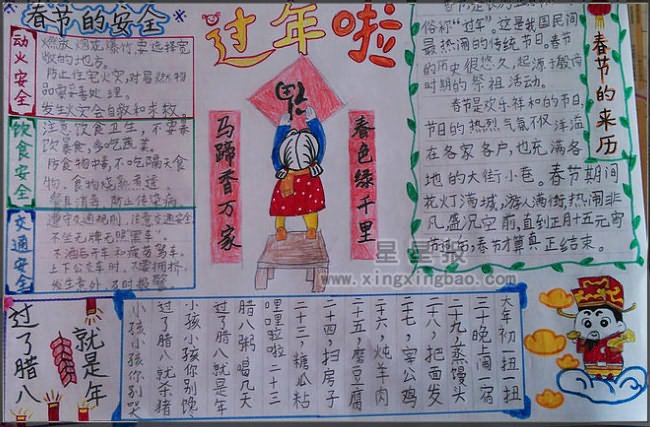 春节的安全
动火安全
燃放烟花爆竹,要选择宽
敞的地方。
防止住宅火灾,对易燃物
品要妥善处理。
发生火灾会自救和求救。
饮食安全
注意饮食卫生,不要暴
饮暴食,多吃蔬菜。
防食物中毒,不吃隔夜食
物,食物烧熟煮透。
餐具消毒,防止传染病。
交通安全
遵守交通规则,注意交通安全。
不坐无牌无照"黑车"。
不酒后开车和疲劳驾车。
上下公交车时,不要拥挤。
发生意外,及时报警
过年啦
福
马蹄香万家
春色绿千里
春节的来历
俗称"过年"。这是我国民间
最热闹的传统节日。春节
的历史很悠久,起源于殷商
时期的祭祖活动。
春节是欢乐祥和的节日,
节日的热烈气氛不仅洋溢
在各家各户,也充满各
地的大街小巷。春节期间
花灯满城,游人满街,热闹非
凡,盛况空前,直到正月十五元宵
节过后,春节才算真正结束。
星星报
www.xingxingbao.com
过了腊八
就是年
小孩小孩你别哭
过了腊八就杀猪
小孩小孩你别馋
过了腊八就是年
腊八粥喝几天
哩哩啦啦二十三
二十三,糖瓜粘
二十四,扫房子
二十五,磨豆腐
二十六,炖羊肉
二十七,宰公鸡
二十八,把面发
二十九,蒸馒头
三十晚上闹一宿
大年初一扭一扭